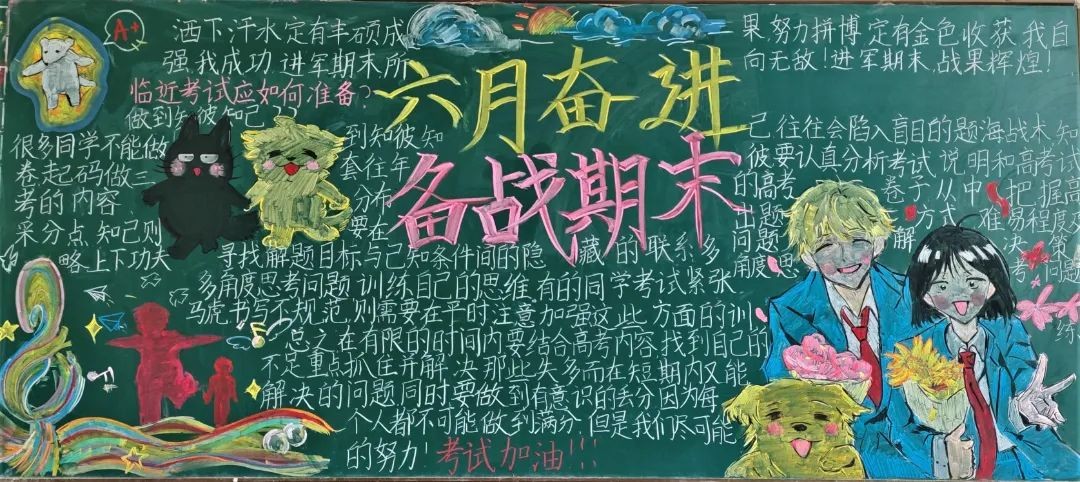 A+
洒下汗水定有丰硕成
果努力拼博定有金色收获我自
强我成功进军期末所
向无敌!进军期末,战果辉煌!
六月奋进
备战期末
临近考试应如何准备?
做到知彼知己
很多同学不能做
到知彼知
己往往会陷入盲目的题海战术知
卷起码做三
套往年
彼要认真分析考试说明和高考试
考的内容
分布
的高考
卷子从中
把握高
采分点.知己则
要在
出题
方式
难易程度及
略上下功夫
寻找解题目标与已知条件间的隐藏的联系多
问题
解决
策
角度思
考问题
多角度思考问题训练自己的思维有的同学考试紧张
马虎书写不规范,则需要在平时注意加强这些方面的训
练
总之在有限的时间内要结合高考内容找到自己的
不足重点抓住并解决那些失多而在短期内又能
解决的问题同时要做到有意识的丢分因为每
个人都不可能做到满分,但是我们尽可能
的努力!考试加油!!!